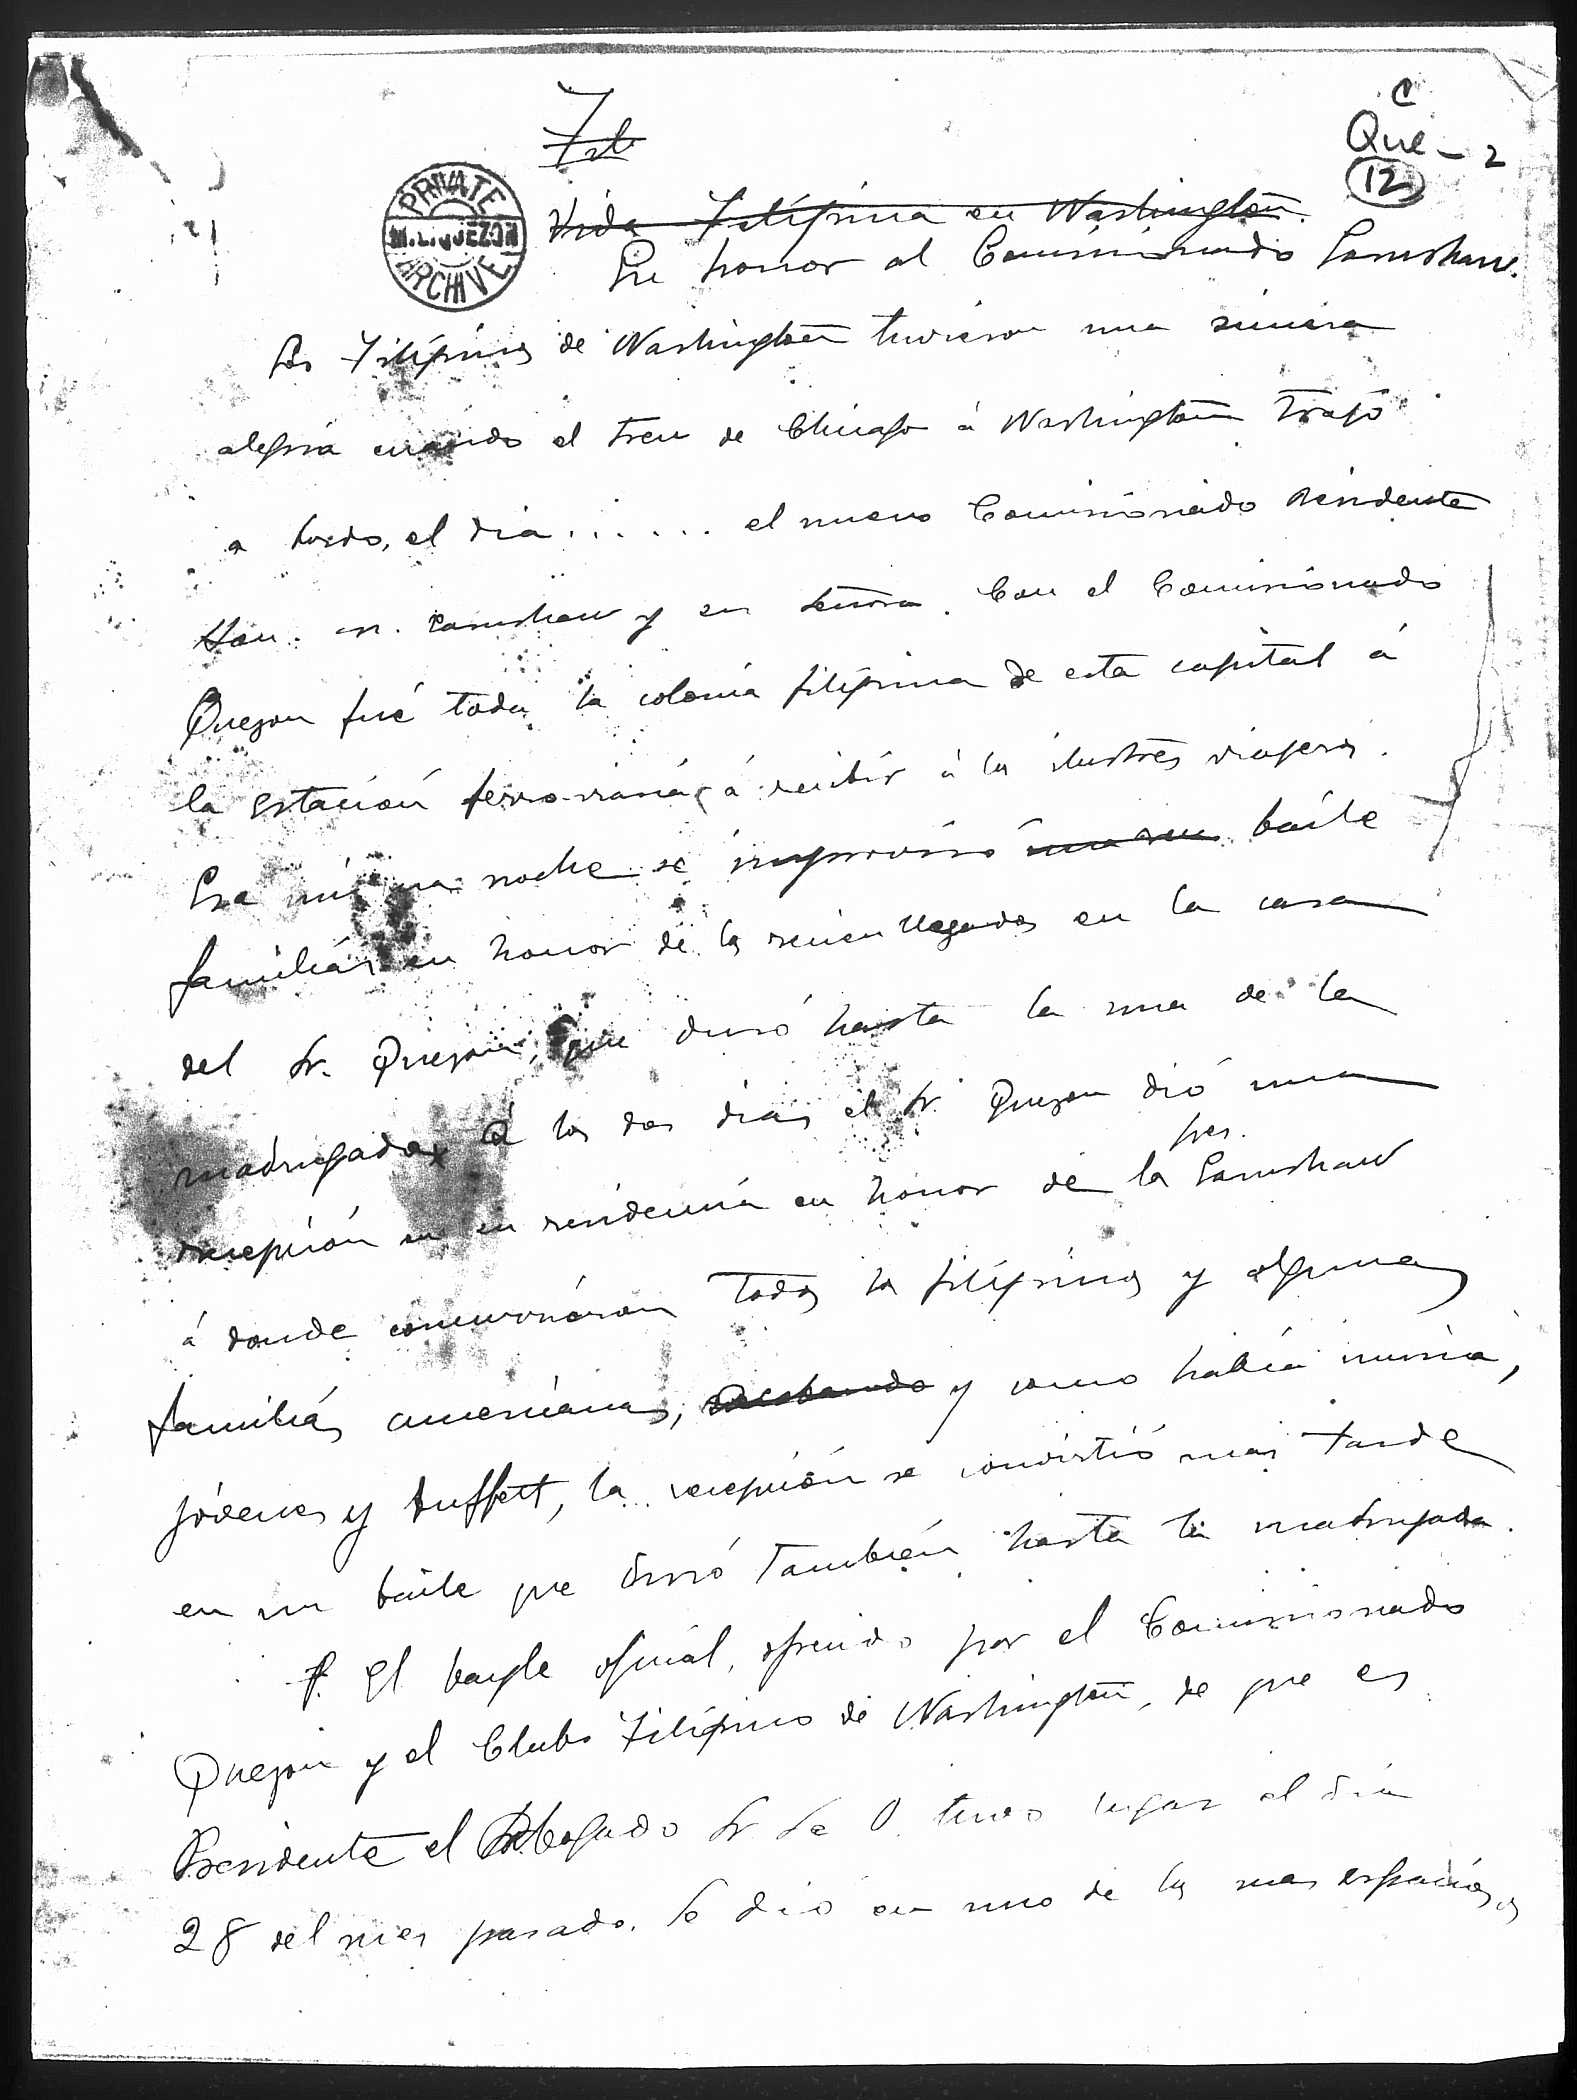 C
Que - 2
12
PRIVATE
M.L. QUEZON
ARCHIVE
Vida Filipina en Washington.
En honor al Comisionado Earnshaw.
Los Filipinos de Washington tuvieron una sincera
alegria cuando el tren de Chicago á Washington trajó
a bordo, el dia ...... el nuevo Comisionado Residente
Hon. m. Earnshaw y su señora. Con el Comisionado
Quezon fué toda la colonia filipina de esta capital á
la estación ferroviaria á recibir á los ilustres viajeros.
Esa misma noche se improvisó baile
familiar en honor de los recien llegados en la casa
del Sr. Quezon, que duró hasta la una de la
madrugada. A los dos dias el Sr. Quezon dió una
recepción en su residencia en honor de los Sres. Earnshaw
á donde concurrieron todos los filipinos y algunas
familias americanas, y como había musica,
jóvenes y buffett, la recepción se convirtió mas tarde
en un baile que duró también hasta la madrugada.
El bayle oficial, ofrecido por el Comisionado
Quezon y el Club Filipino de Washington, de que es
Presidente el Abogado Sr. de O. tuvo lugar el dia
28 del mes pasado. Se dió en uno de los mas espaciosos